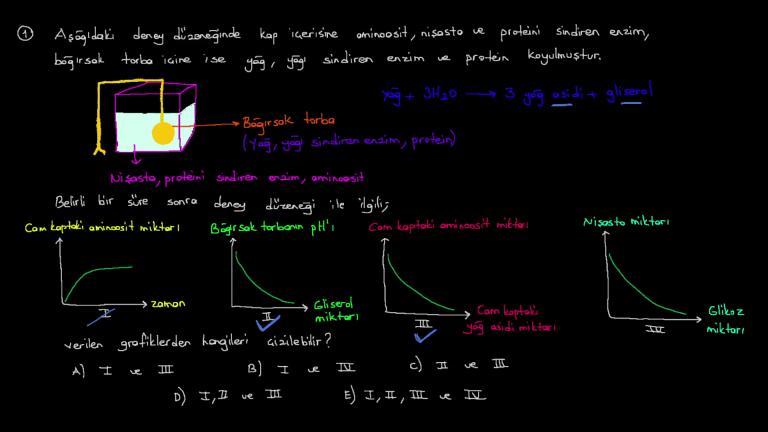 1 Aşağıdaki deney düzeneğinde kap içerisine aminoasit, nişasta ve proteini sindiren enzim,
bağırsak torba içine ise yağ, yağı sindiren enzim ve protein koyulmuştur.
yağ + 3H2O → 3 yağ asidi + gliserol
Bağırsak torba
(Yağ, yağı sindiren enzim, protein)
Nişasta, proteini sindiren enzim, aminoasit
Belirli bir süre sonra deney düzeneği ile ilgili;
Cam kaptaki aminoasit miktarı
zaman
I
Bağırsak torbanın pH'ı
Gliserol
miktarı
II
Cam kaptaki aminoasit miktarı
Cam kaptaki
yağ asidi miktarı
III
Nişasta miktarı
Glikoz
miktarı
IV
verilen grafiklerden hangileri çizilebilir?
A) I ve III
B) I ve IV
C) II ve III
D) I, II ve III
E) I, II, III ve IV